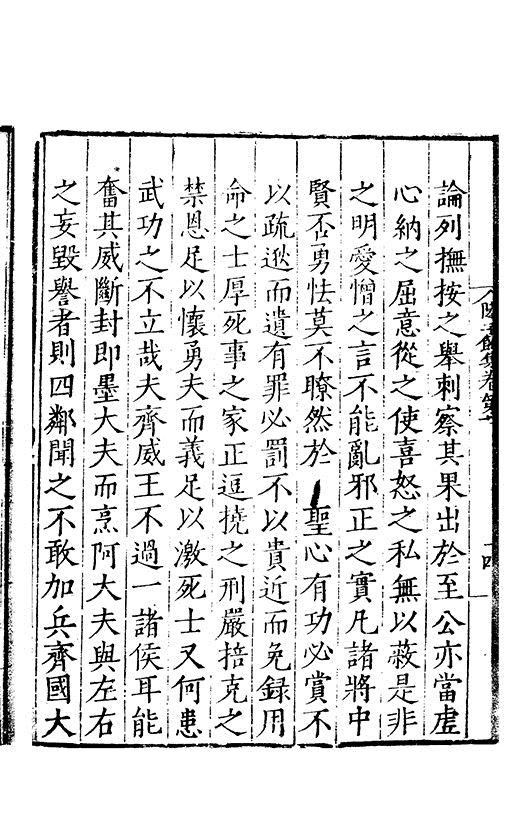 論列撫按之舉刺察其果出於至公亦當虛
心納之屈意從之使喜怒之私無以蔽是非
之明愛憎之言不能亂邪正之實凡諸將中
賢否勇怯莫不瞭然於聖心有功必賞不
以疏逖而遺有罪必罰不以貴近而免録用
命之士厚死事之家正逗撓之刑嚴掊克之
禁恩足以懷勇夫而義足以激死士又何患
武功之不立哉夫齊威王不過一諸侯耳能
奮其威斷封即墨大夫而烹阿大夫與左右
之妄毀譽者則四鄰聞之不敢加兵齊國大